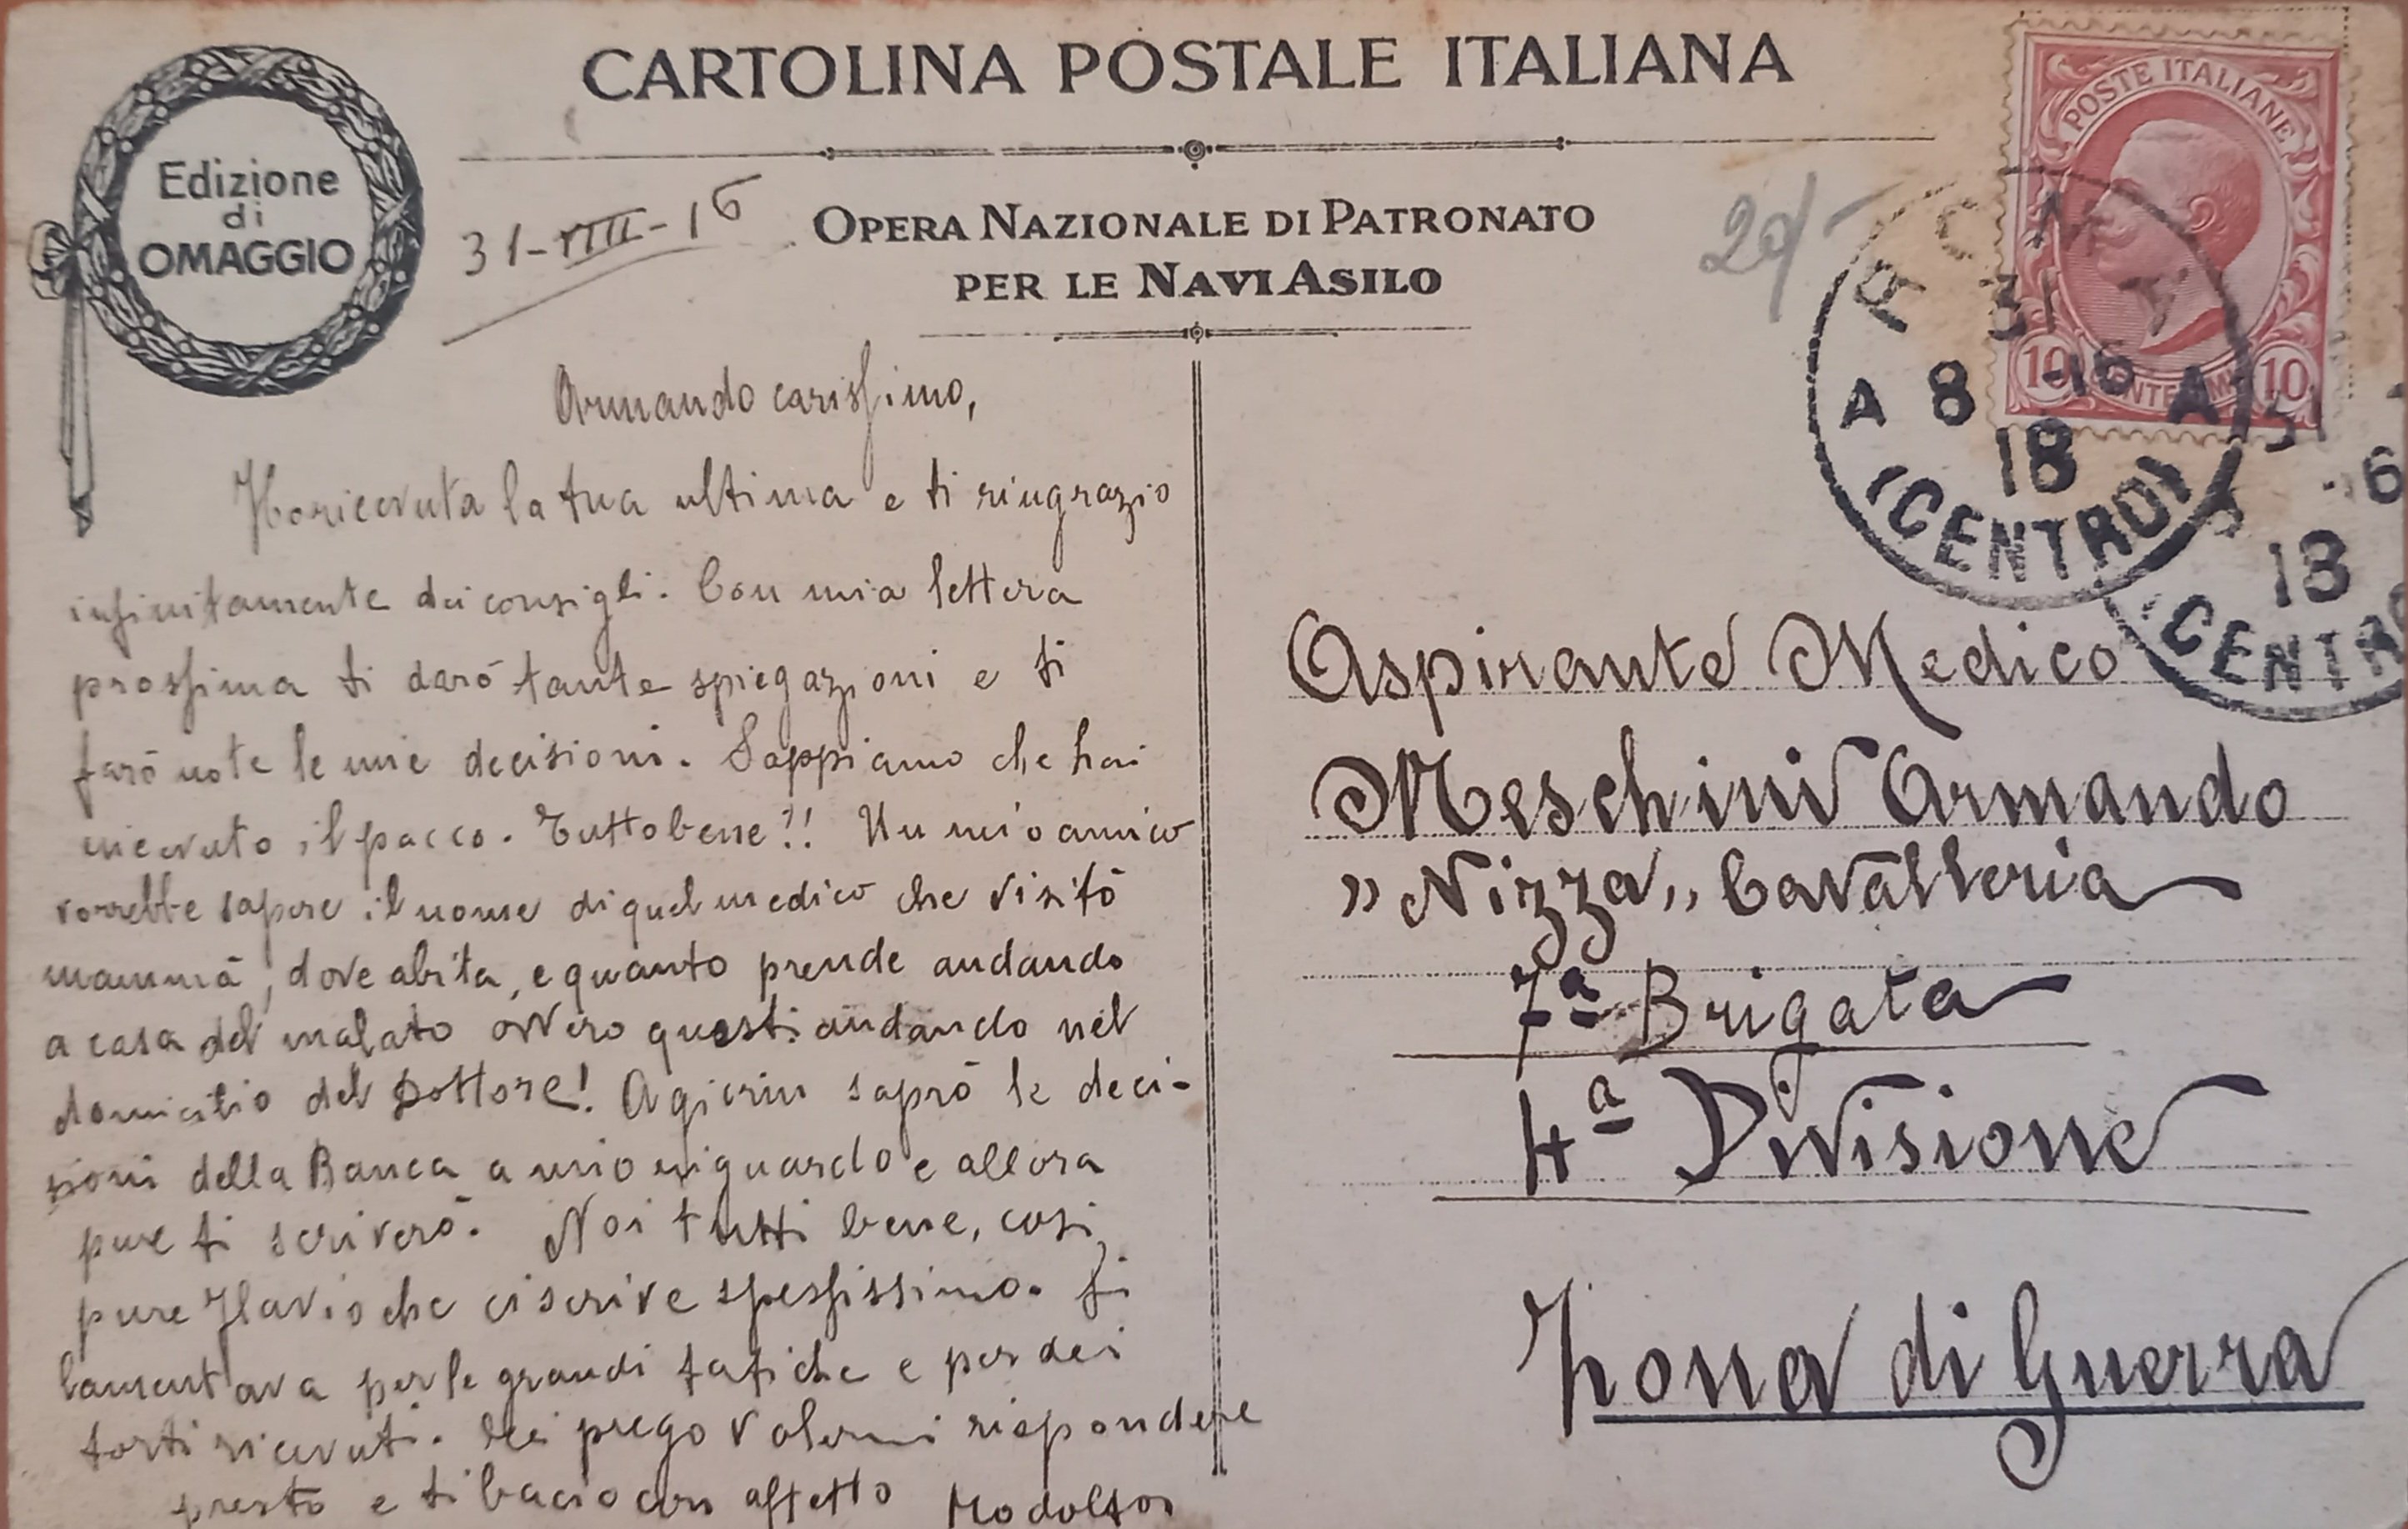 CARTOLINA POSTALE ITALIANA
Edizione
di
OMAGGIO
31-VIII-16
OPERA NAZIONALE DI PATRONATO
PER LE NAVI ASILO
20/-
POSTE ITALIANE
10 CENTESIMI 10
ROMA
31
A 8 -16 A
18
(CENTRO)
31
8 -16
18
(CENTRO
Armando carissimo,
Ho ricevuta la tua ultima e ti ringrazio
infinitamente dei consigli. Con mia lettera
prossima ti darò tante spiegazioni e ti
farò note le mie decisioni. Sappiamo che hai
ricevuto il pacco. Tutto bene?!! Un mio amico
vorrebbe sapere il nome di quel medico che visitò
mammà, dove abita, e quanto prende andando
a casa del malato ovvero questi andando nel
domicilio del Dottore! A giorni saprò le deci-
sioni della Banca a mio riguardo e allora
pure ti scriverò. Noi tutti bene, così
pure Flavio che ci scrive spessissimo. Si
lamentava per le grandi fatiche e per dei
torti ricevuti. prego volermi rispondere
presto e ti bacio con affetto
Aspirante Medico
Meschini Armando
"Nizza" Cavalleria
7ª Brigata
4ª Divisione
Zona di Guerra